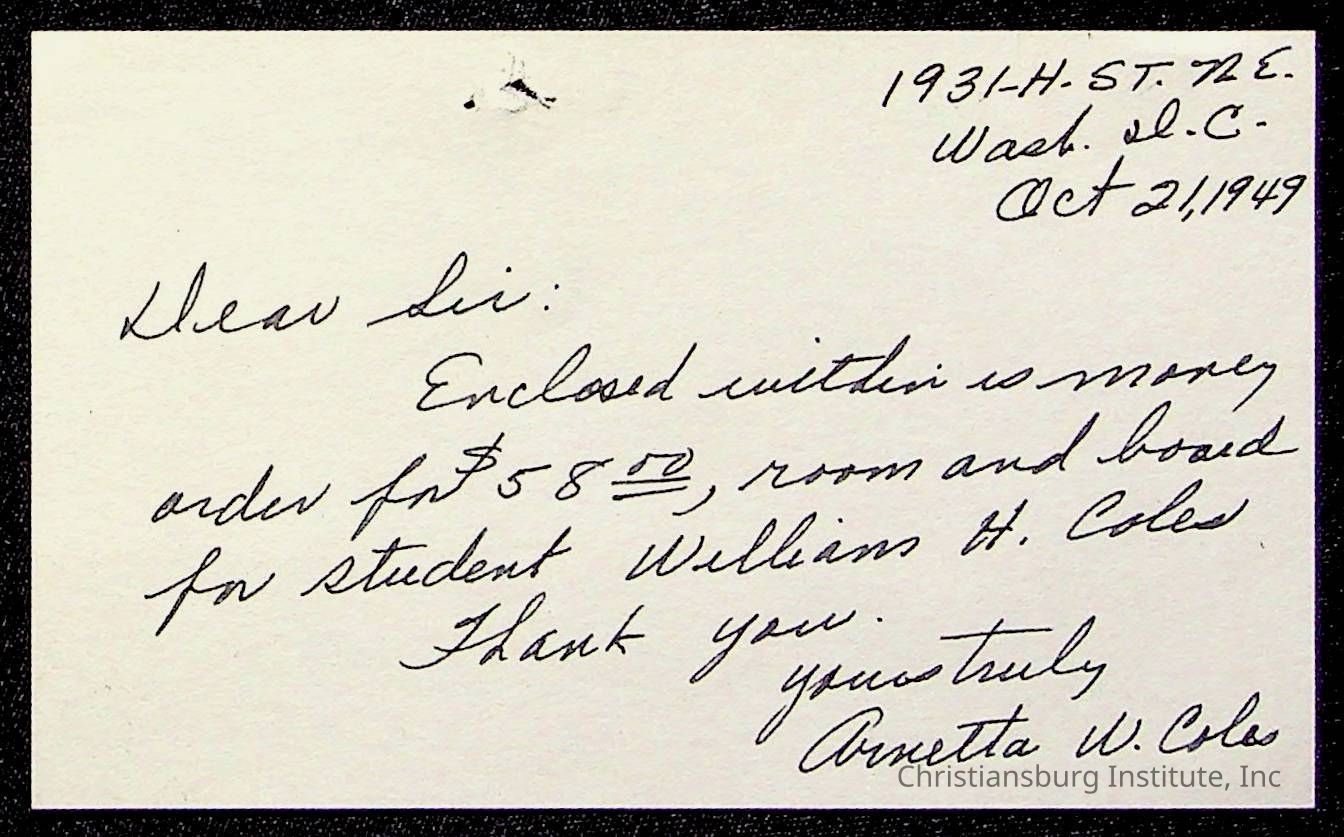 1931-H. ST. N E.
Wash. D. C.
Oct 21, 1949
Dear Sir:
Enclosed within is money
order for $58 00, room and board
for student William H. Coles
Thank you.
yours truly
Arnetta W. Coles
Christiansburg Institute, Inc